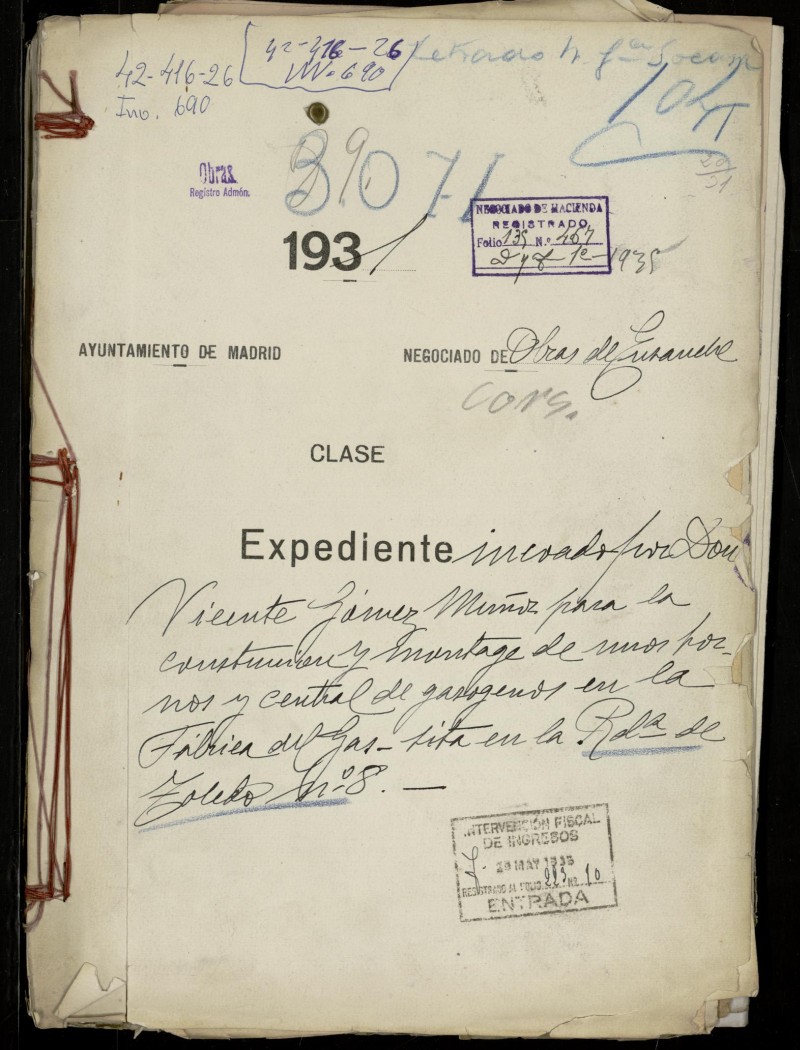 42-416-26
Inv. 690
42-416-26
Inv. 690
Obras
Registro Admón.
NEGOCIADO DE HACIENDA
REGISTRADO
Folio 135 N.º 457
1935
1931
AYUNTAMIENTO DE MADRID
NEGOCIADO DE Obras de Ensanche
CLASE
Expediente incoado por Don
Vicente Gómez Muñoz para la
construcion y montage de unos hor-
nos y central de gasogenos en la
Fábrica del Gas- sita en la Rda de
Toledo nº 8. —
INTERVENCIÓN FISCAL
DE INGRESOS
MAY 1935
REGISTRADO AL FOLIO 223 Nº 10
ENTRADA